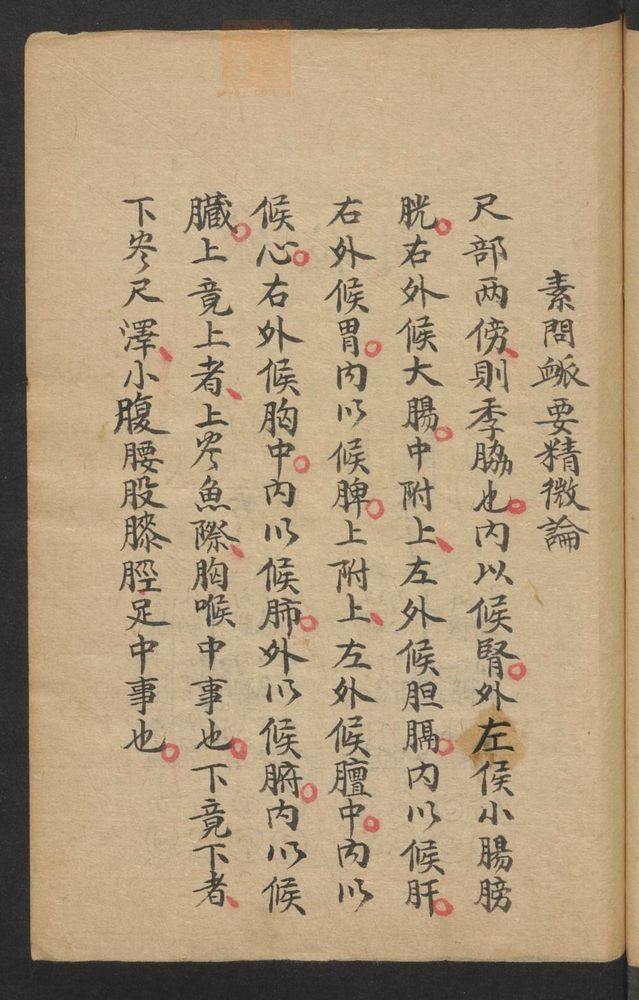 素問𧖴要精微論
尺部两傍、則季脇也。内以候腎。外左候小腸膀
胱。右外候大腸。中附上、左外候胆膈。内以候肝。
右外候胃。内以候脾。上附上、左外候膻中。内以
候心。右外候胸中。内以候肺。外以候腑。内以候
臓。上竟上者、上至魚際、胸喉中事也。下竟下者、
下至尺澤、小腹腰股膝脛足中事也。